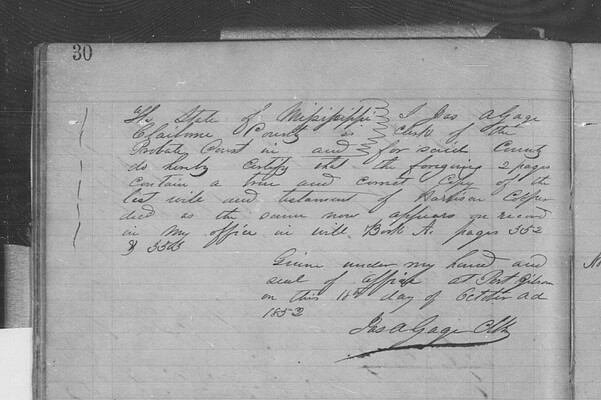 30
The State of Missisippi I Jas A Gage
Claiborne County ss Clerk of the
Probate Court in and for said County
do hereby Certify that the foregoing 2 pages
Contain a true and correct Copy of the
last will and testament of Harrison
decd as the same now appears on record
in my office in will Book A. pages 352
& 353
Given under my hand and
seal of office at Port Gibson
on this day of October Ad
1853
Jas A Gage Clk
No